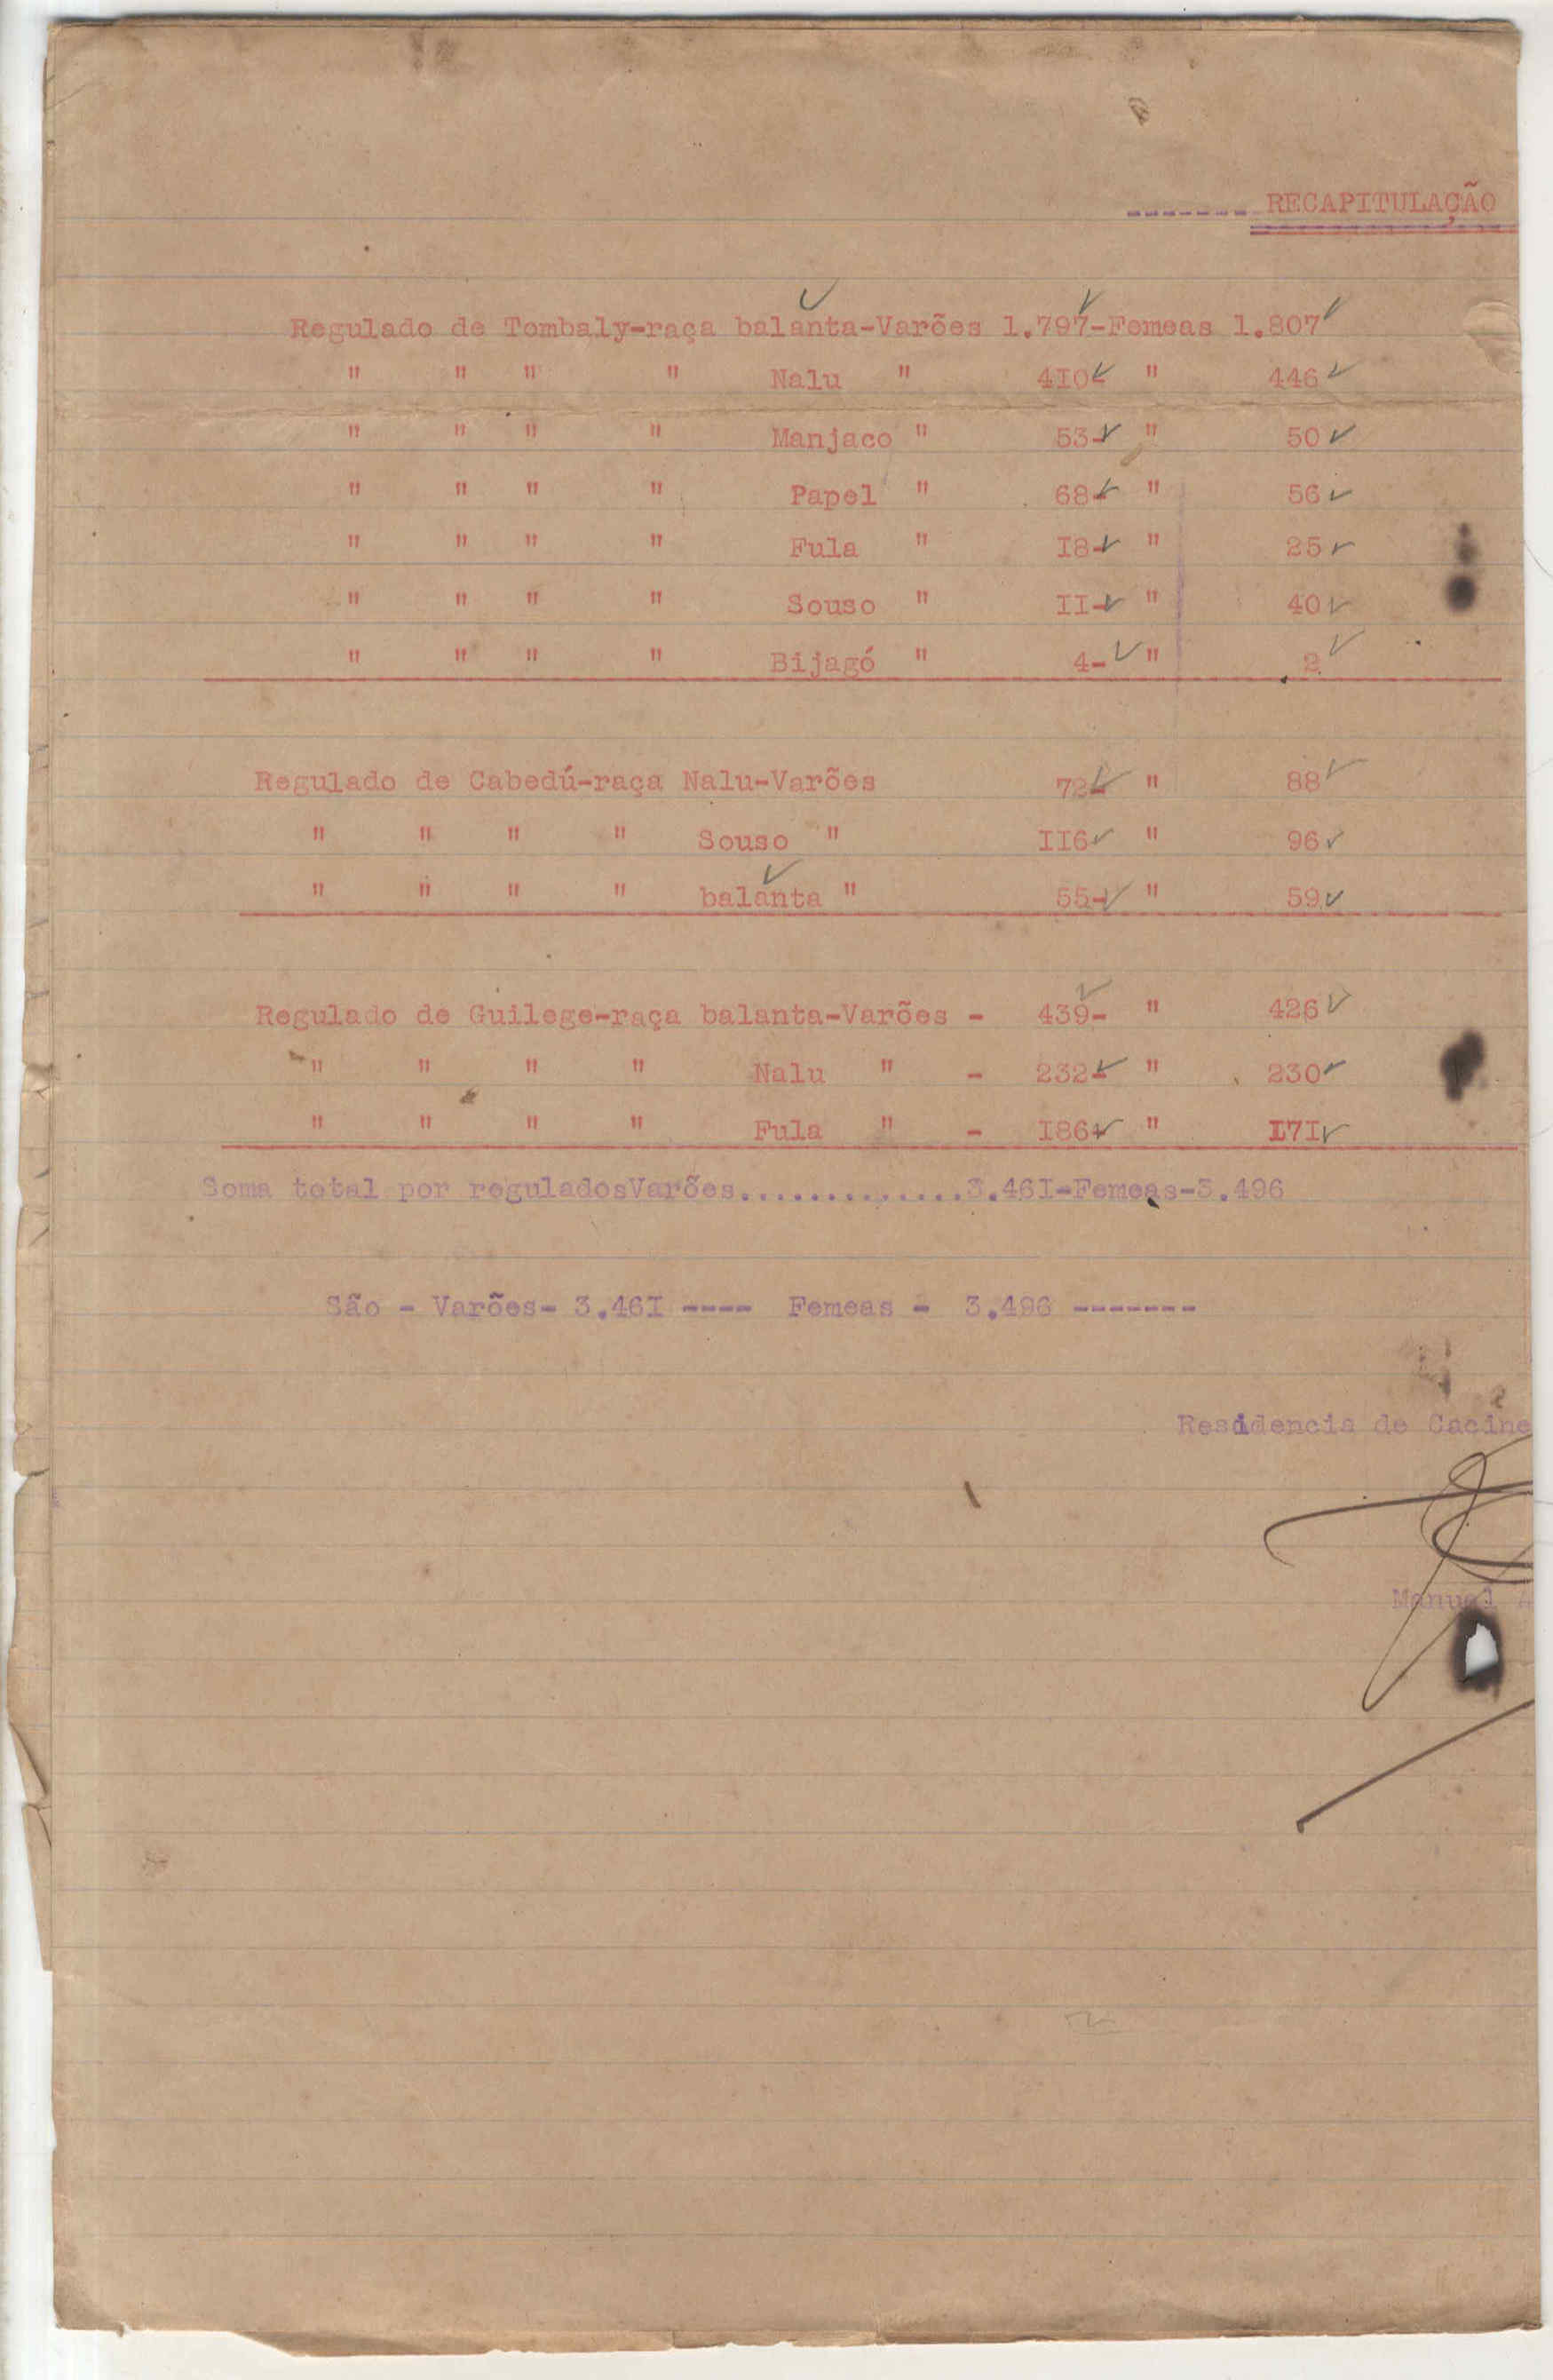 ------- RECAPITULAÇÃO
Regulado de Tombaly-raça balanta-Varões 1.797-Femeas 1.807
" " " " Nalu " 4I0- " 446
" " " " Manjaco " 53- " 50
" " " " Papel " 68- " 56
" " " " Fula " I8- " 25
" " " " Souso " II- " 40
" " " " Bijagó " 4- " 2
Regulado de Cabedú-raça Nalu-Varões 72- " 88
" " " " Souso " II6 " 96
" " " " balanta " 55- " 59
Regulado de Guilege-raça balanta-Varões - 439- " 426
" " " " Nalu " - 232- " 230
" " " " Fula " - I86- " I7I
Soma total por reguladosVarões.............3.46I-Femeas-3.496
São - Varões- 3.46I ---- Femeas - 3.496 -------
Residencia de Cacine
Manuel A